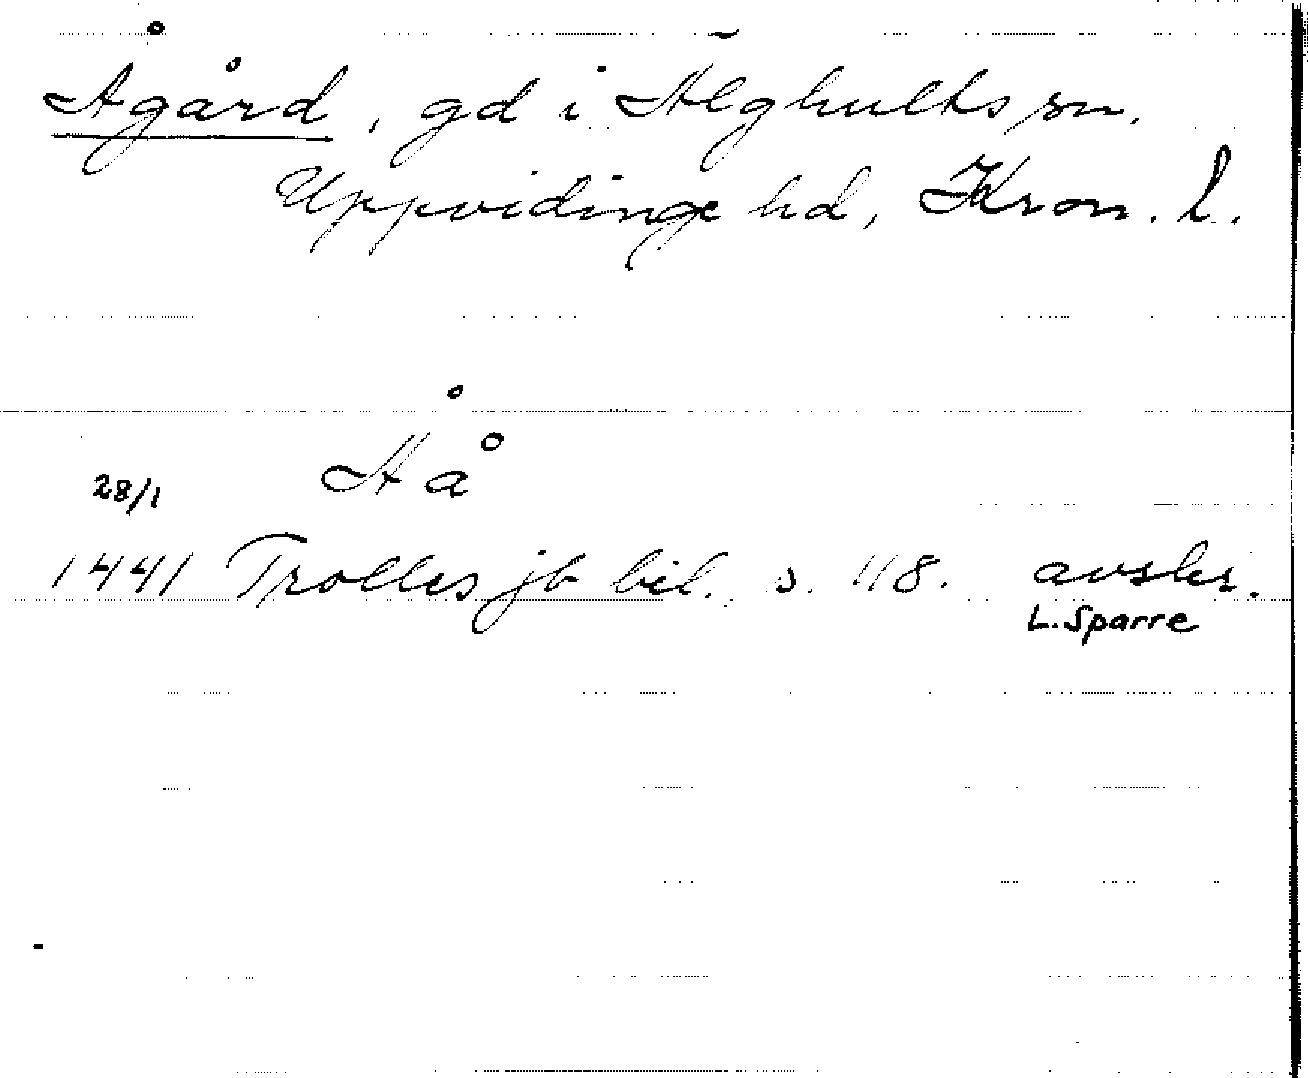 Ågård, gd i Älghults sn,
Uppvidinge hd, Kron. l.
Åå
28/1
1441 Trolles jb bil. s. 118. avskr.
L. Sparre